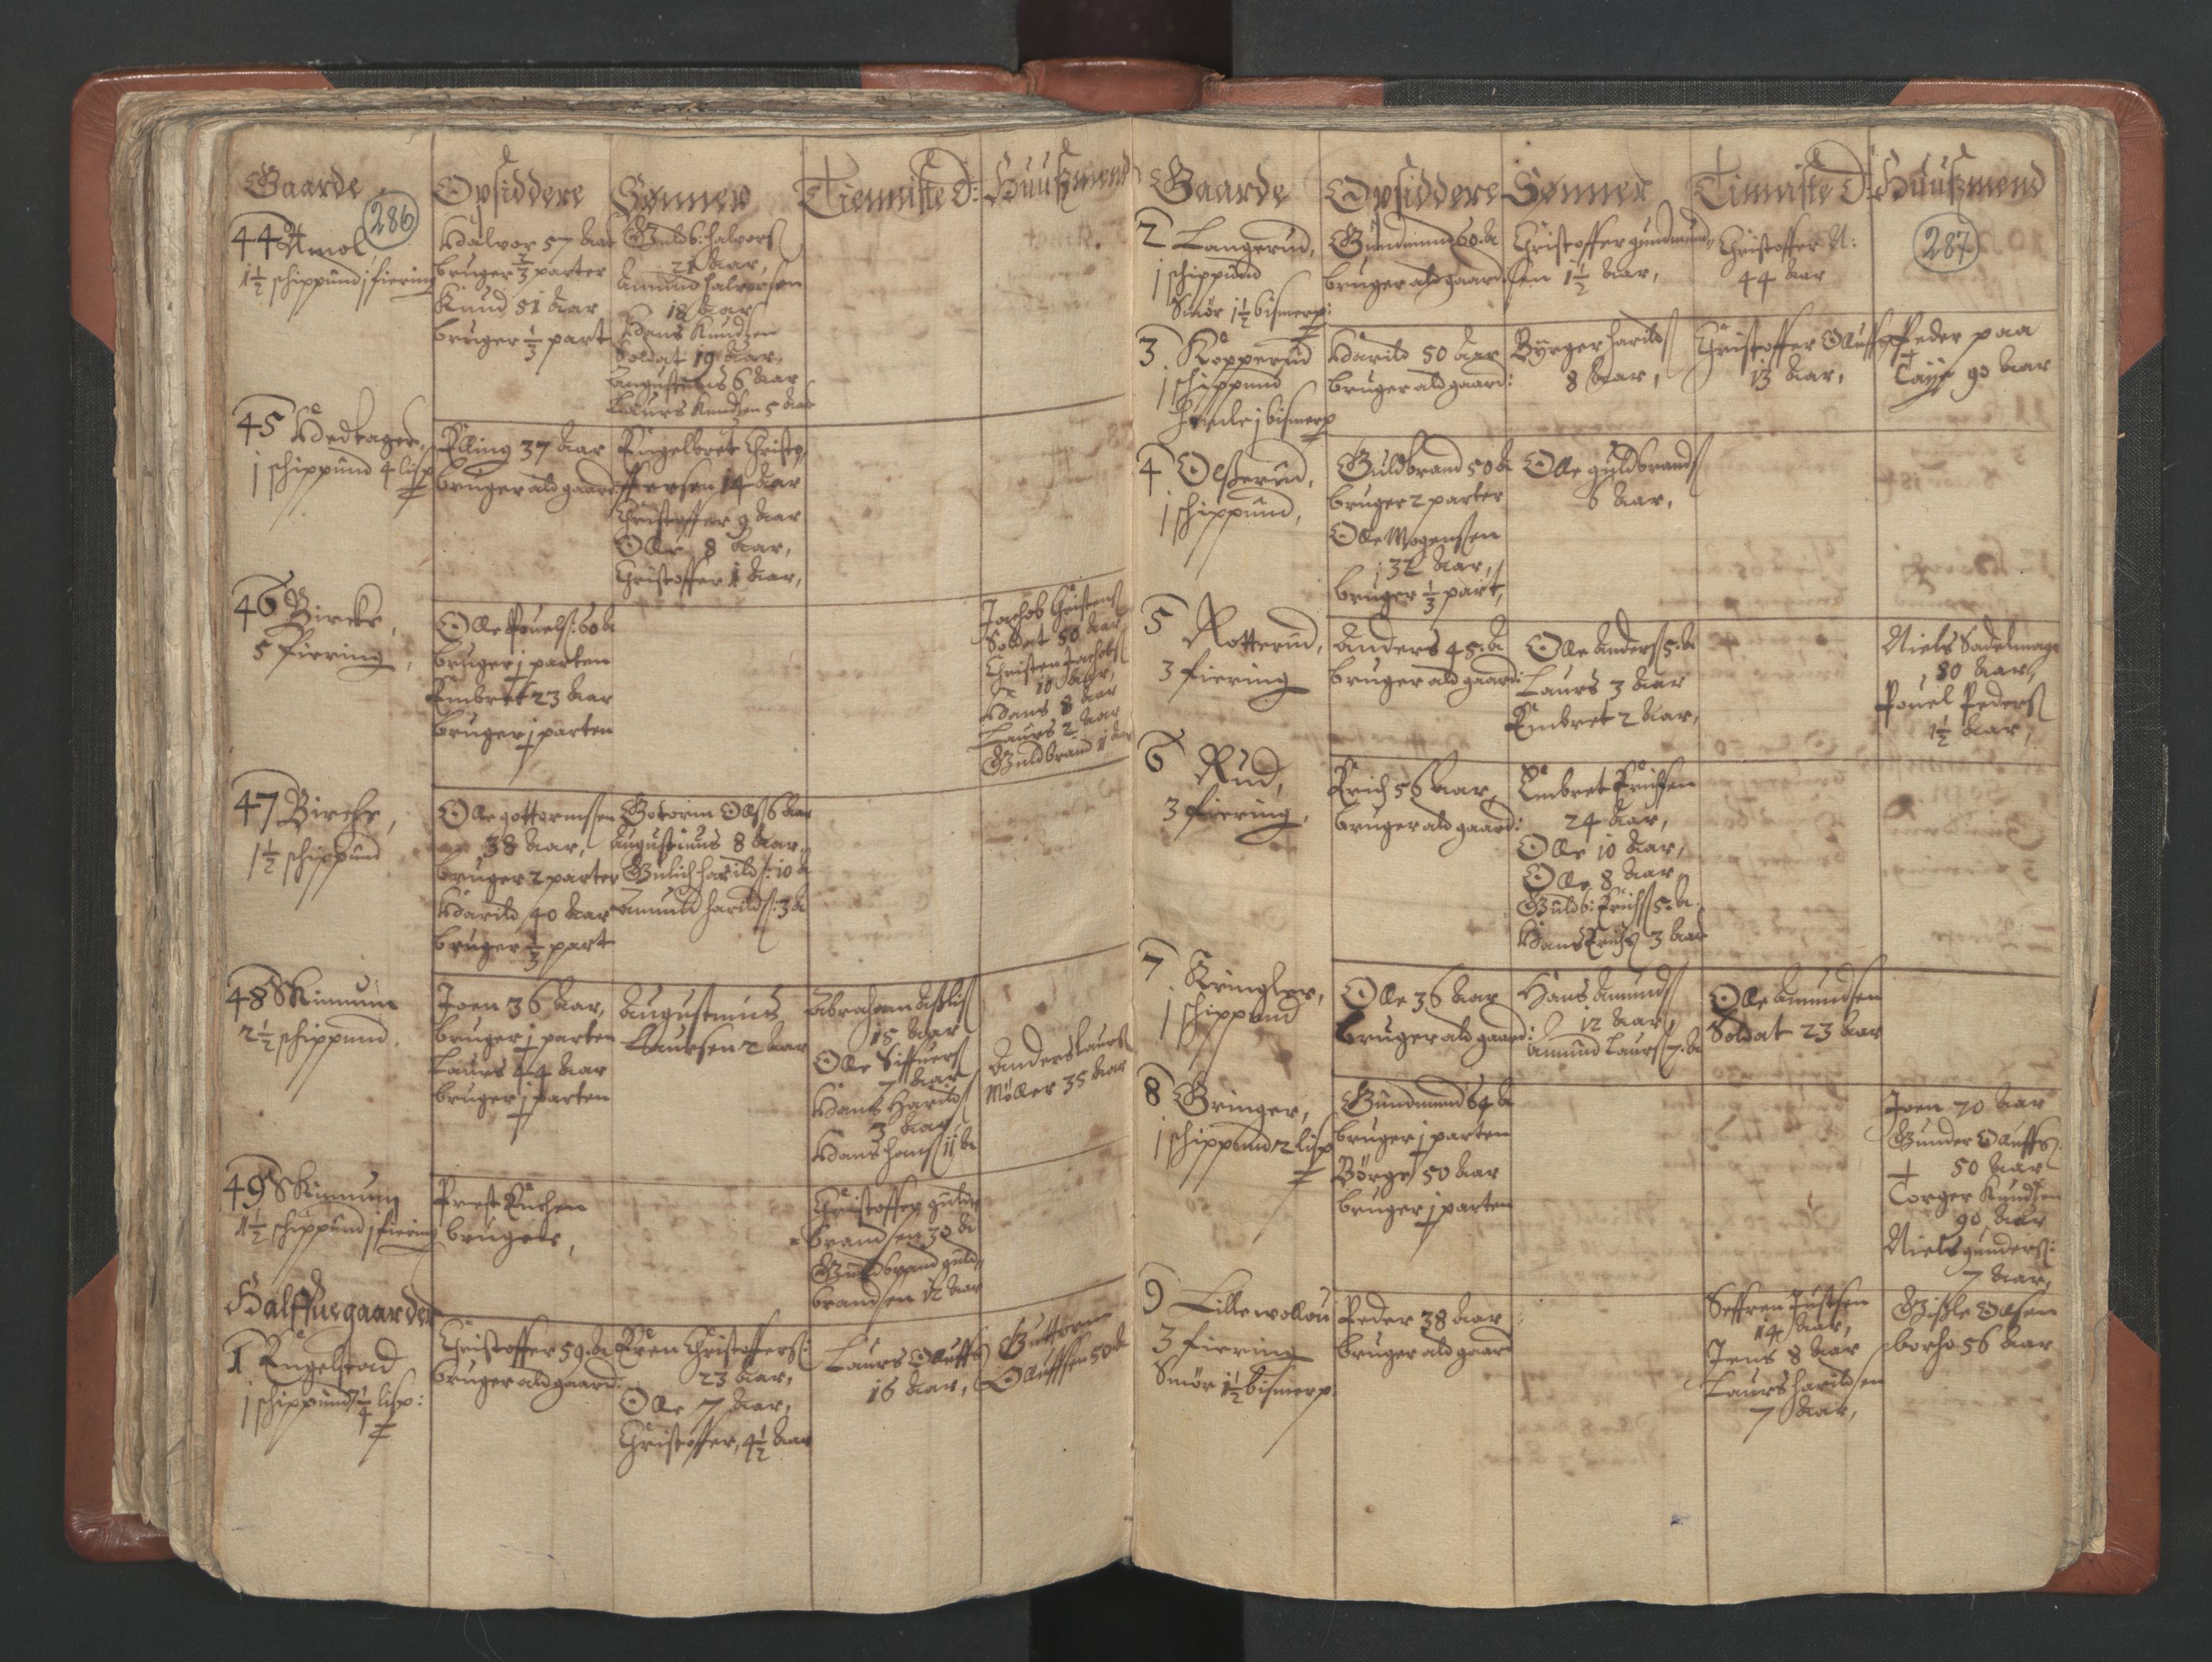 Gaarde Opsiddere Sønner Tienniste D: Huußmend
286
44 Amol
1½ schippund j fiering
Halvor 57 Aar
bruger ⅔ parter
Knud 51 Aar
bruger ⅓ part
Guldb: halvorß
21 Aar,
Amund halvorsen
18 Aar
Hans Knudsen
Soldat 19 Aar,
Augustinus 6 Aar
Laurs Knudsen 5 Aar
45 Hedeager,
j schippund 4 lisp
Elling 37 Aar
bruger ald gaard
Engelbret Christo
ffersen 14 Aar
Christoffer 9 Aar
Olle 8 Aar,
Christoffer 1 Aar,
46 Bircke,
5 fiering,
Olle Pouelß: 60 A
bruger j parten
Embret 23 Aar
bruger j parten
Jachob Christenß
Soldat 50 Aar,
Christen Jachobß
10 Aar,
Hans 8 Aar
Laurs 2 Aar
Guldbrand 11 Aar
47 Bircke,
1½ schippund
Olle gottormsen
38 Aar,
bruger 2 parter
Harild 40 Aar
bruger ⅓ part
Gotorm Olß 6 Aar
Augustinus 8 Aar,
Gulich harildß: 10 A
Amund harildß: 3 A
48 Skinnum
2½ schippund.
Joen 36 Aar,
bruger j parten
Laurs 44 Aar
bruger j parten
Augustinus
Laursen 2 Aar
Abraham
15 Aar
Olle Siffuerß
7 Aar
Hans Harildß
3 Aar
Hans Hanß 11 Ar
Anders Laurß
Møller 35 Aar
49 Skinnum
1½ schippund j fiering
Prest Enchen
bruger,
Christoffer guld
brandsen 30 A
Guldbrand guld,
brandsen 12 Aar
Halffuegaarde
1 Engelstad
j schippund ¼ lisp:
Christoffer 59. A
bruger ald gaard:
Even Christofferß:
23 Aar,
Olle 7 Aar,
Christoffer, 4½ Aar
Laurs Oluffß
16 Aar,
Guttorm
Oluffsen 50 A
Gaarde Opsiddere Sønner Tienniste D: Huußmend
287
2 Langerud,
j schippund
Smør 1½ bismerp:
Gundmund 60. A
bruger ald gaard
Christoffer gundmund,
sen 1½ Aar,
Christoffer N:
44 Aar
3 Kopperud
j schippund
Hunle j bismerp
Harild 50 Aar
bruger ald gaard:
Byrger harildß
8 Aar,
Christoffer Oluffß
13 Aar,
Peder paa
Taye 90 Aar
4 Olßerud,
j schippund,
Guldbrand 50 A
bruger 2 parter
Olle Mogensen
32 Aar,
bruger ⅓ part,
Olle guldbrandß
6 Aar,
5 Rotterud,
3 fiering
Anders 45. A
bruger ald gaard:
Olle Anderß 5. A
Laurs 3 Aar
Embret 2 Aar,
Niels Sadelmager
80 Aar,
Pouel Pederß
1½ Aar,
6 Rud,
3 fiering,
Erich 56 Aar,
bruger ald gaard:
Embret Erichsen
24 Aar,
Olle 10 Aar,
Olle 8 Aar,
Guldb: Erichß 5. A.
Hans Erichß 3 Aar
7 Kringler,
j schippund
Olle 36 Aar
bruger ald gaard:
Hans Amundß
12 Aar,
Amund Laurß 7. A
Olle Amundsen
Soldat 23 Aar
8 Gringer,
j schippund 2 lisp
Gundmund 64 A
bruger j parten
Børge 50 Aar
bruger j parten
Joen 70 Aar
Gunder Oluffß
50 Aar
Torger Knudsen
90 Aar
Niels gunderß:
7 Aar,
9 Lille wollou
3 fiering
Smør 1½ bismerp
Peder 38 Aar
bruger ald gaard
Seffren Justsen
14 Aar,
Jens 8 Aar
Laurs harildsen
7 Aar,
Gisle Olsen
borho 56 Aar